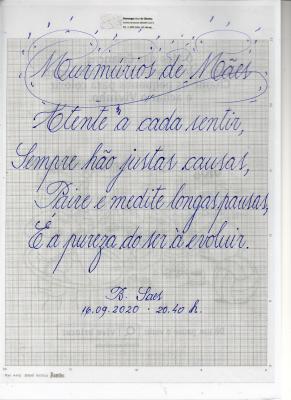 Murmúrios de Mães
Atente à cada sentir,
Sempre hão justas causas,
Paire e medite longas pausas,
É a pureza do ser à evoluir.
B. Saes
16.09.2020 - 20.40 h.